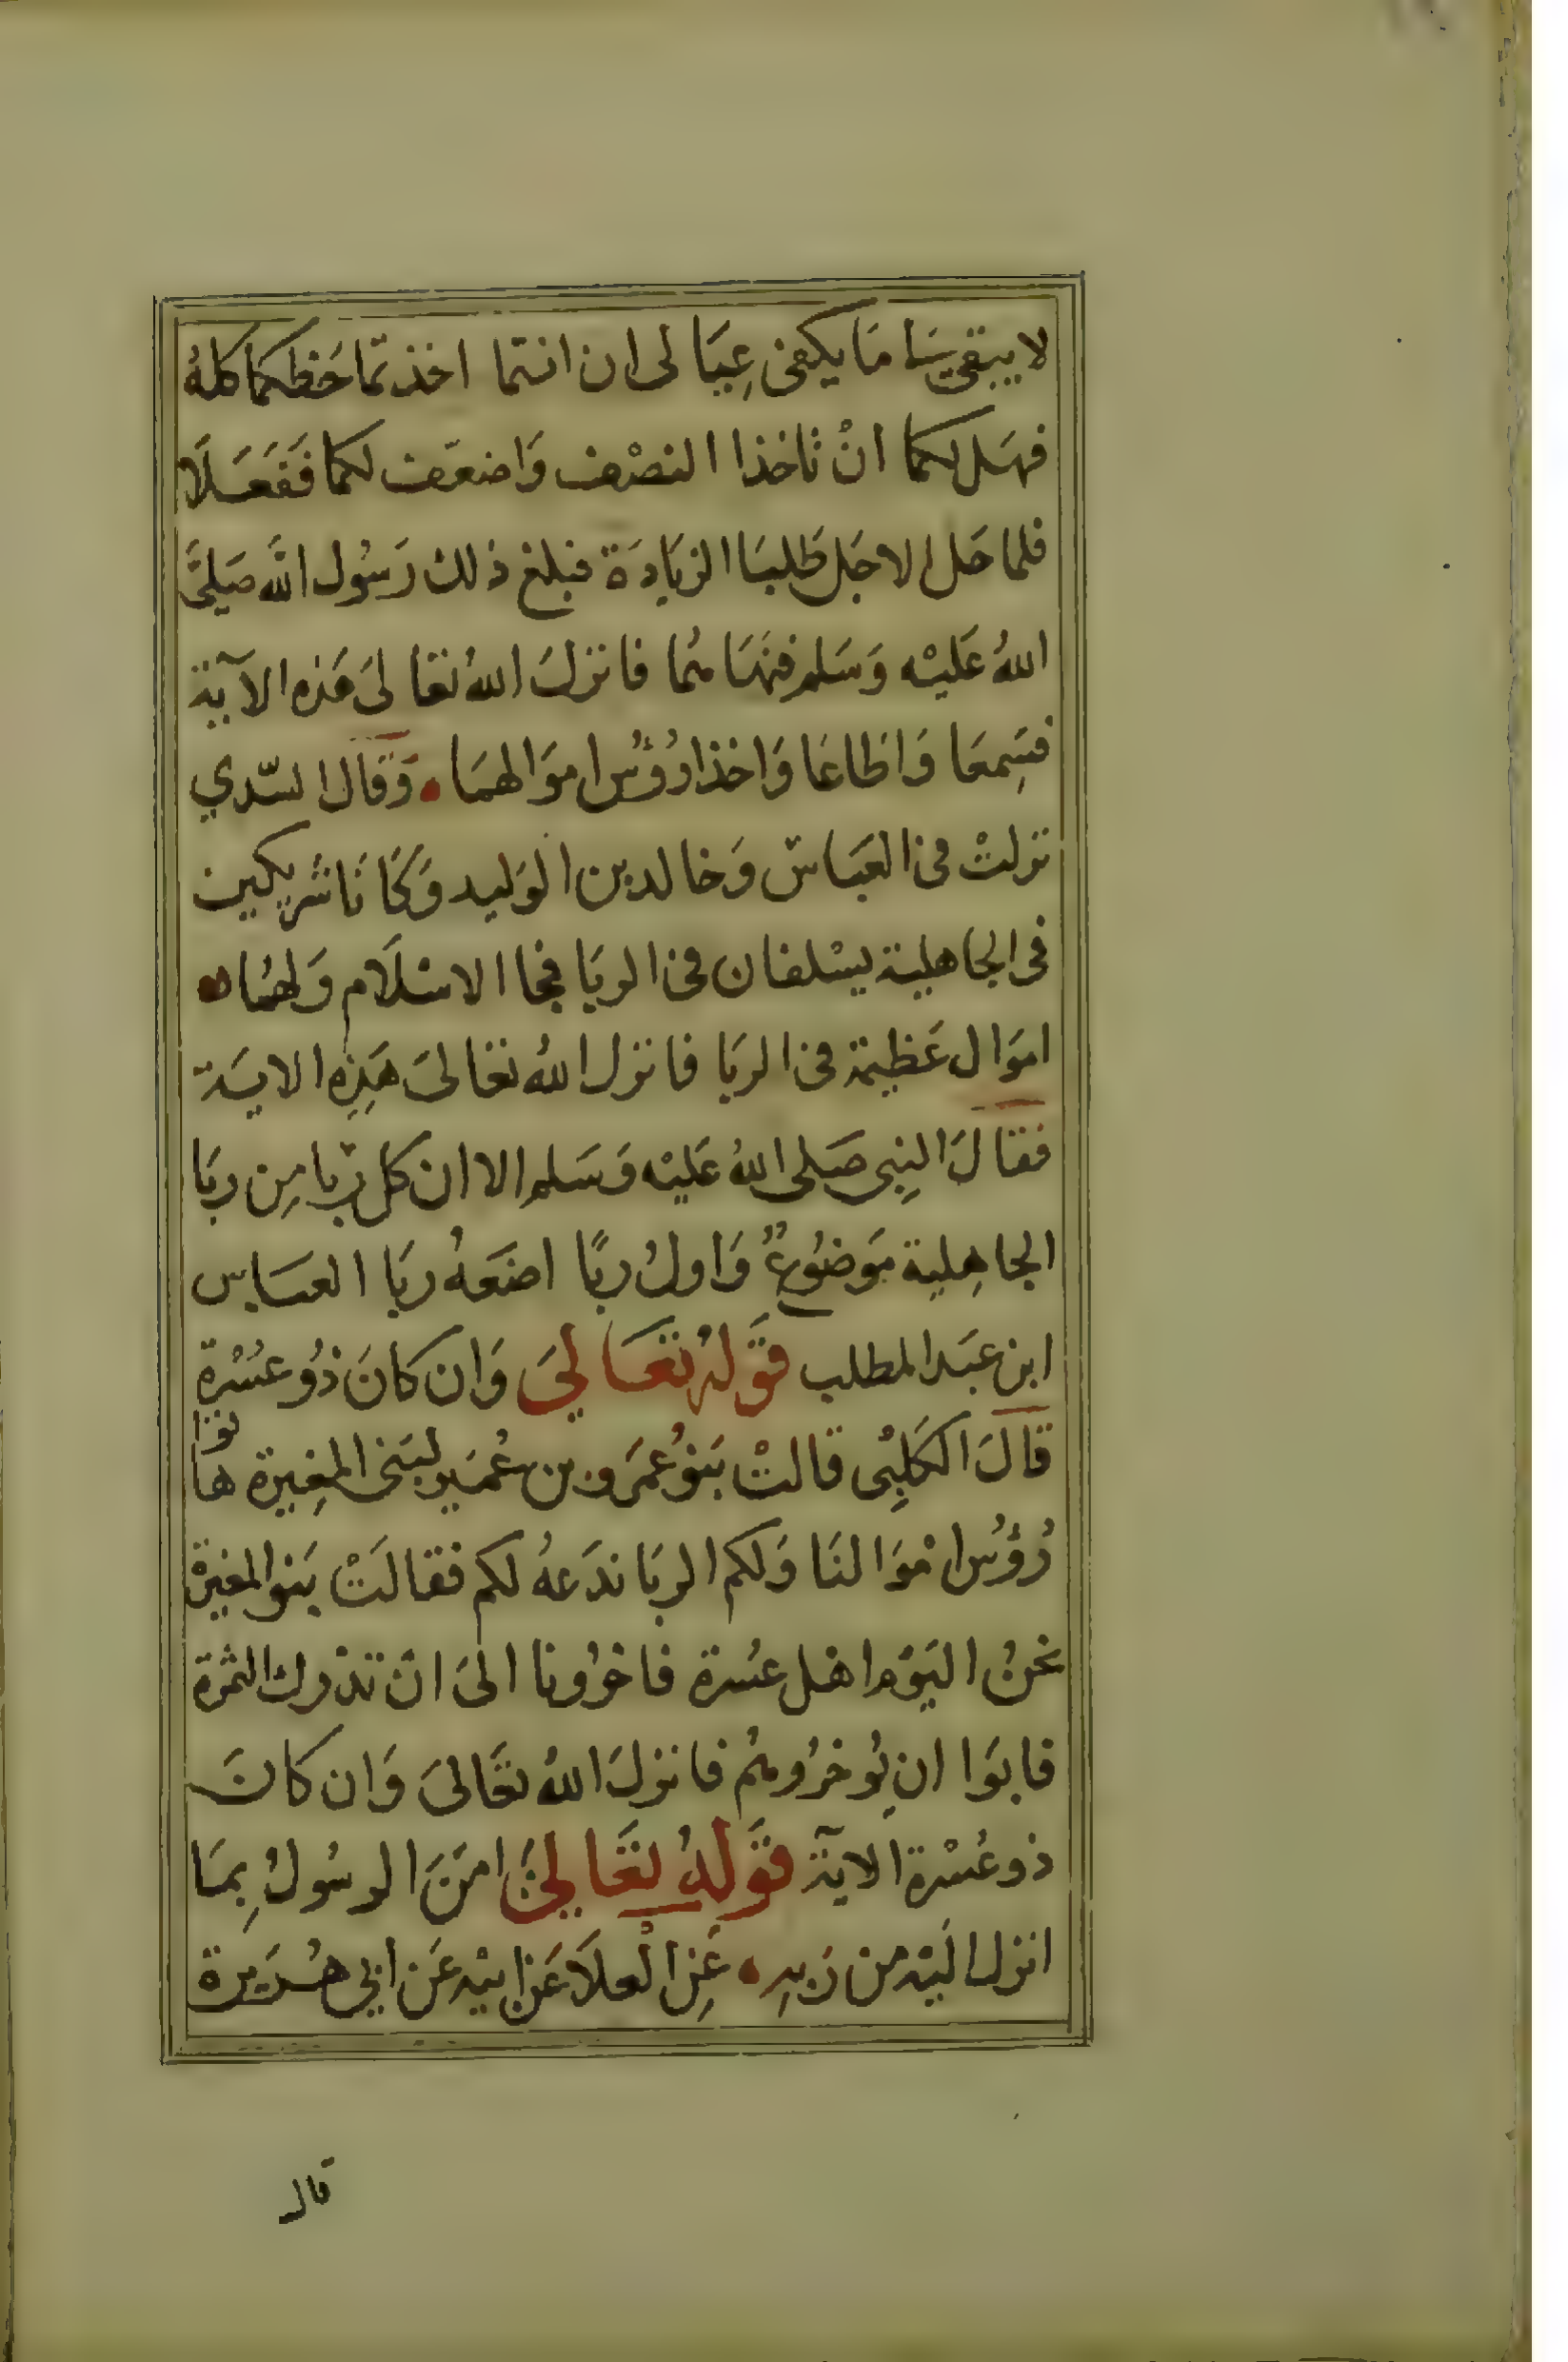 لا يبقى ما يكفى عِيَالى ان انتما اخذتما حَظكما كلهُ
فهَل لكما انْ تاخذا النصْف وَاضعّف لكما فَفَعَلَا
فلما حَل الاجَل طَلبَا الزيَادَة فبلغ ذلك رَسُول اللَّه صَلىَّ
اللهُ عَليْه وَسَلم فنَهَاهُما فانزلَ اللهُ تعَالىَ هَذه الآية
فسَمِعَا وَاطَاعَا وَاخذا رُؤُسَ امَوَالهمَا وَقالَ السّدي
نزلتْ فى العَبَاسّ وَخالد بن الوَليد وَكَانَا شريكين
فى الجاهلية يسْلفان فى الربَا فجا الاسْلَام وَلهُمَا
امَوَال عَظيمَة فى الربَا فانزل اللهُ تعَالىَ هَذِه الايَة
فقالَ النبِى صَلى اللهُ عَليْه وَسَلم الا ان كل رّبا مِن ربَا
الجاهِلِية مَوضُوعٌ وَاولُ ربًا اضعَهُ ربَا العبَاس
ابن عبَد المطلب قَولهُ تعَالىَ وَان كانَ ذُو عسُرْة
قالَ الكَلبِىْ قالتْ بَنوُ عمَرو بن عُمَير لبَنى المغِيرة هاتوا
رُؤُسَ امْوَالنَا وَلكم الربَا ندَعهُ لكم فقالَتْ بَنوا المغيرة
نحنُ اليَوْم اهْل عسُرة فاخرُونا الىَ انْ تدْرك الثمرَة
فابوَا ان يُوخرُوهُم فانزلَ اللهُ تعَالىَ وَان كانَ
ذو عُسْرة الآية قَولهُ تعَالىَ امَنَ الرسُولُ بِمَا
انزل الَيْه مِن رَبهِ عَنِ العلَا عَن ابيْه عَن ابي هُرَيرة
قال